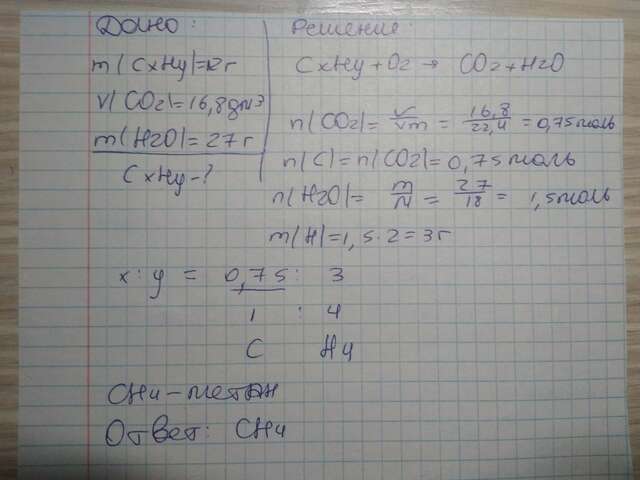 Дано:
m(CxHy)=12г
V(CO2)=16,8дм3
m(H2O)=27г
CxHy-?
Решение:
CxHy+O2→ CO2+H2O
n(CO2)= V/Vm = 16,8/22,4 = 0,75моль
n(C)=n(CO2)=0,75моль
n(H2O)= m/M = 27/18 = 1,5моль
m(H)=1,5·2=3г
x:y = 0,75: 3
1 : 4
C H4
CH4-метан
Ответ: CH4